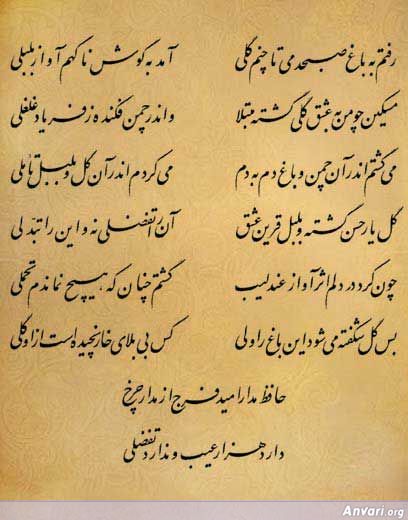 رفتم به باغ صبحدمی تا چنم گلی آمد به گوش ناگهم آواز بلبلی
مسکین چو من به عشق گلی گشته مبتلا واندر چمن فکنده ز فریاد غلغلی
می‌گشتم اندر آن چمن و باغ دم به دم می‌کردم اندر آن گل و بلبل تأملی
گل یار حسن گشته و بلبل قرین عشق آن را تفضلی نه و این را تبدلی
چون کرد در دلم اثر آواز عندلیب گشتم چنان که هیچ نماندم تحملی
بس گل شکفته می‌شود این باغ را ولی کس بی بلای خار نچیده است از او گلی
حافظ مدار امید فرج از مدار چرخ
دارد هزار عیب و ندارد تفضلی
Anvari.org